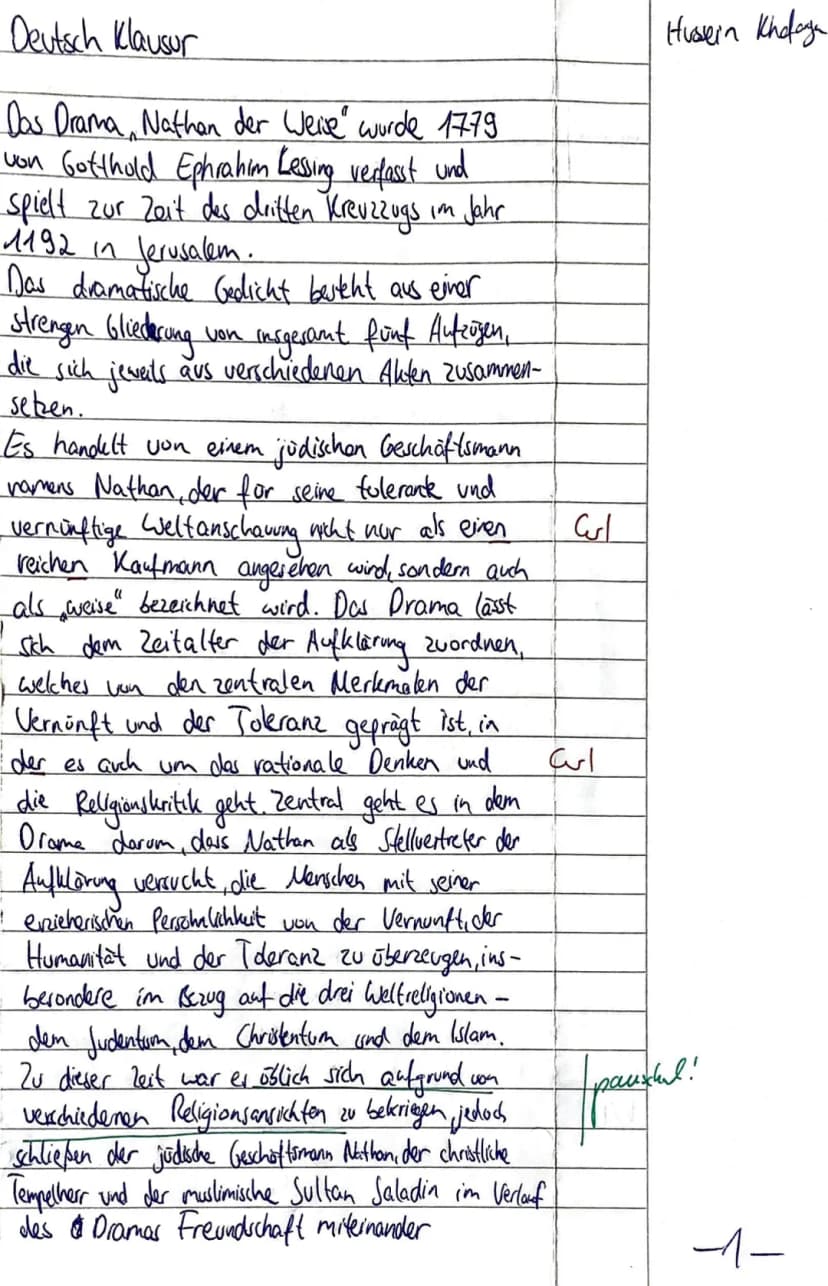 Deutsch Klausur
Hussein
Das Drama „Nathan der Weise" wurde 1779
von Gotthold Ephrahim Lessing verfasst und
spielt zur Zeit des dritten Kreuzzugs im Jahr
1192 in Jerusalem.
Das dramatische Gedicht besteht aus einer
strengen Gliederung von insgesamt fünf Aufzügen,
die sich jeweils aus verschiedenen Akten zusammen-
setzen.
Es handelt von einem jüdischen Geschäftsmann
namens Nathan, der für seine tolerante und
vernünftige Weltanschauung nicht nur als einen
reichen Kaufmann angesehen wird, sondern auch
als „weise" bezeichnet wird. Das Drama lässt
sich dem Zeitalter der Aufklärung zuordnen,
welches von den zentralen Merkmalen der
Vernünft und der Toleranz geprägt ist, in
der es auch um das rationale Denken und
die Religionskritik geht. Zentral geht es in dem
Drama darum, dass Nathan als Stellvertreter der
Aufklärung versucht, die Menschen mit seiner
erzieherischen Persönlichkeit von der Vernunft, der
Humanität und der Toleranz zu überzeugen, ins-
besondere im Bezug auf die drei Weltreligionen -
dem Judentum, dem Christentum und dem Islam.
Zu dieser Zeit war es üblich sich aufgrund von
pauschal!
verschiedenen Religionsansichten zu bekriegen, jedoch
schließen der jüdische Geschäftsmann Nathan, der christliche
Tempelherr und der muslimische Sultan Saladin im Verlauf
des Dramas Freundschaft miteinander
-1-